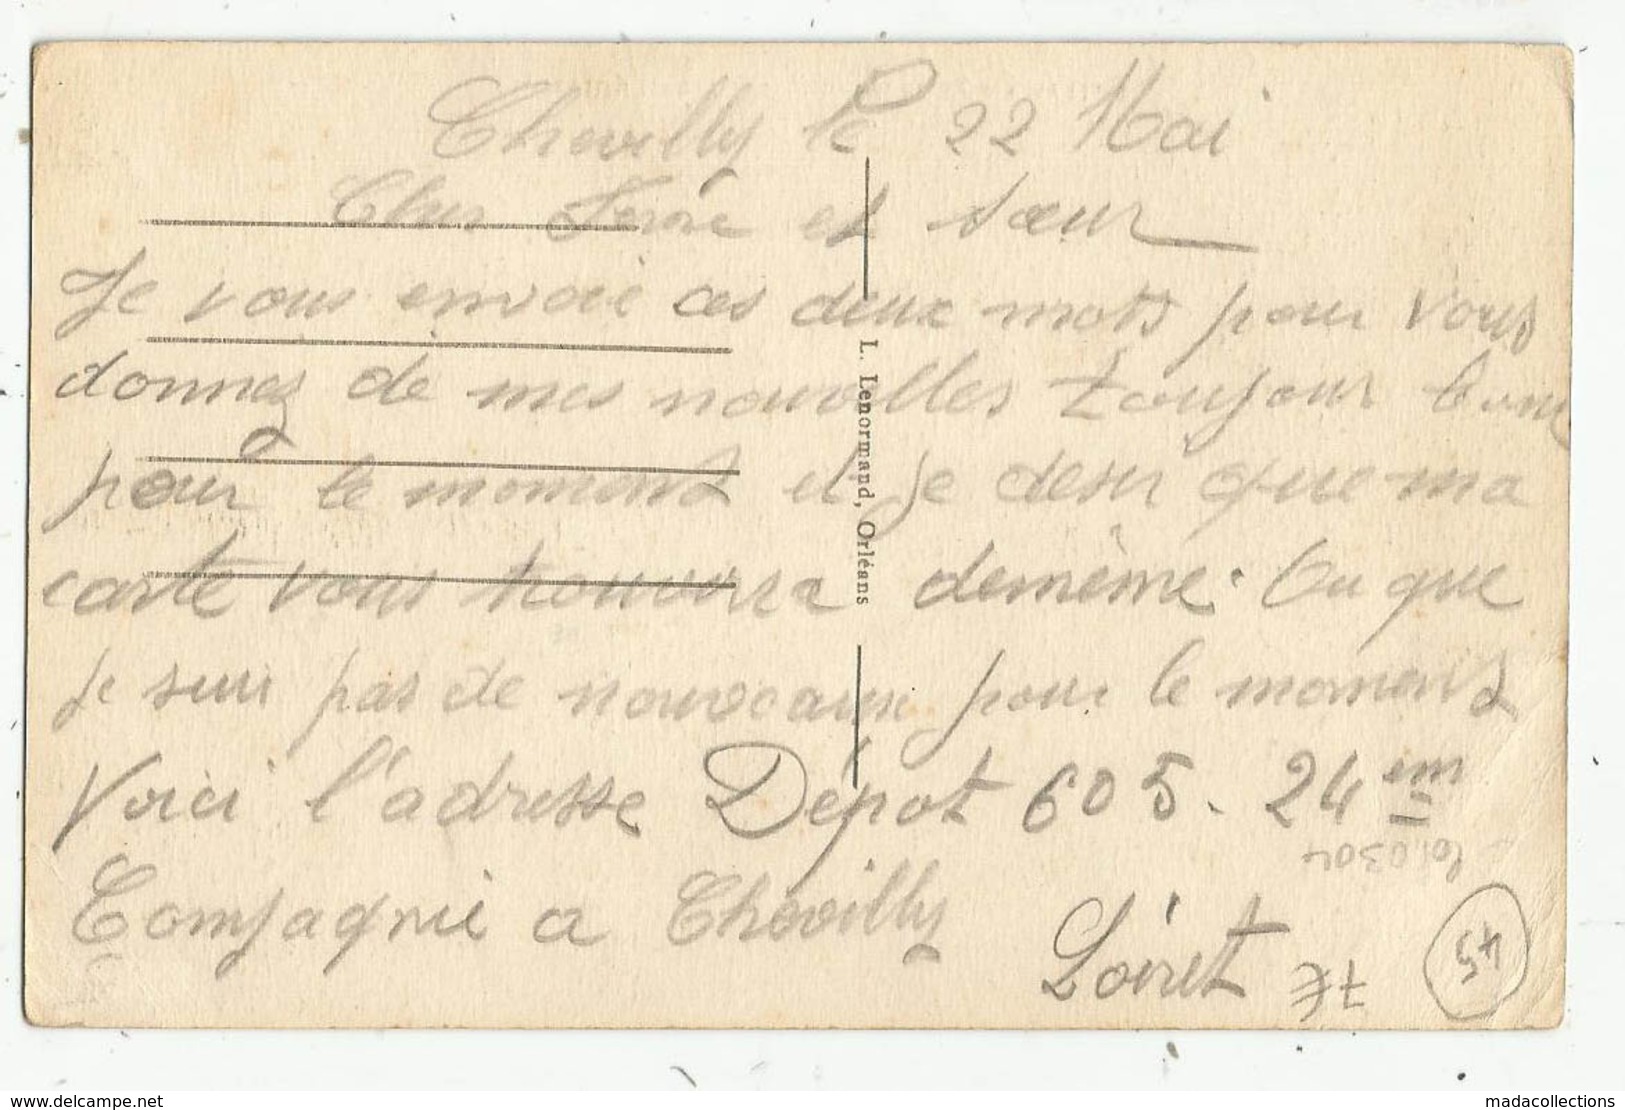 Chevilly le 22 Mai
Cher Frère et sœur
Je vous envoie ces deux mots pour vous
donnez de mes nouvelles toujour bonne
pour le moment et je desir que ma
carte vous trouvera demème. Ou que
je suis pas de nouveaux pour le moment
Voici l'adresse Dépot 605. 24em
Compagnie a Chevilly
Loiret
L. Lenormand, Orléans
7€
45
www.delcampe.net
madacollections